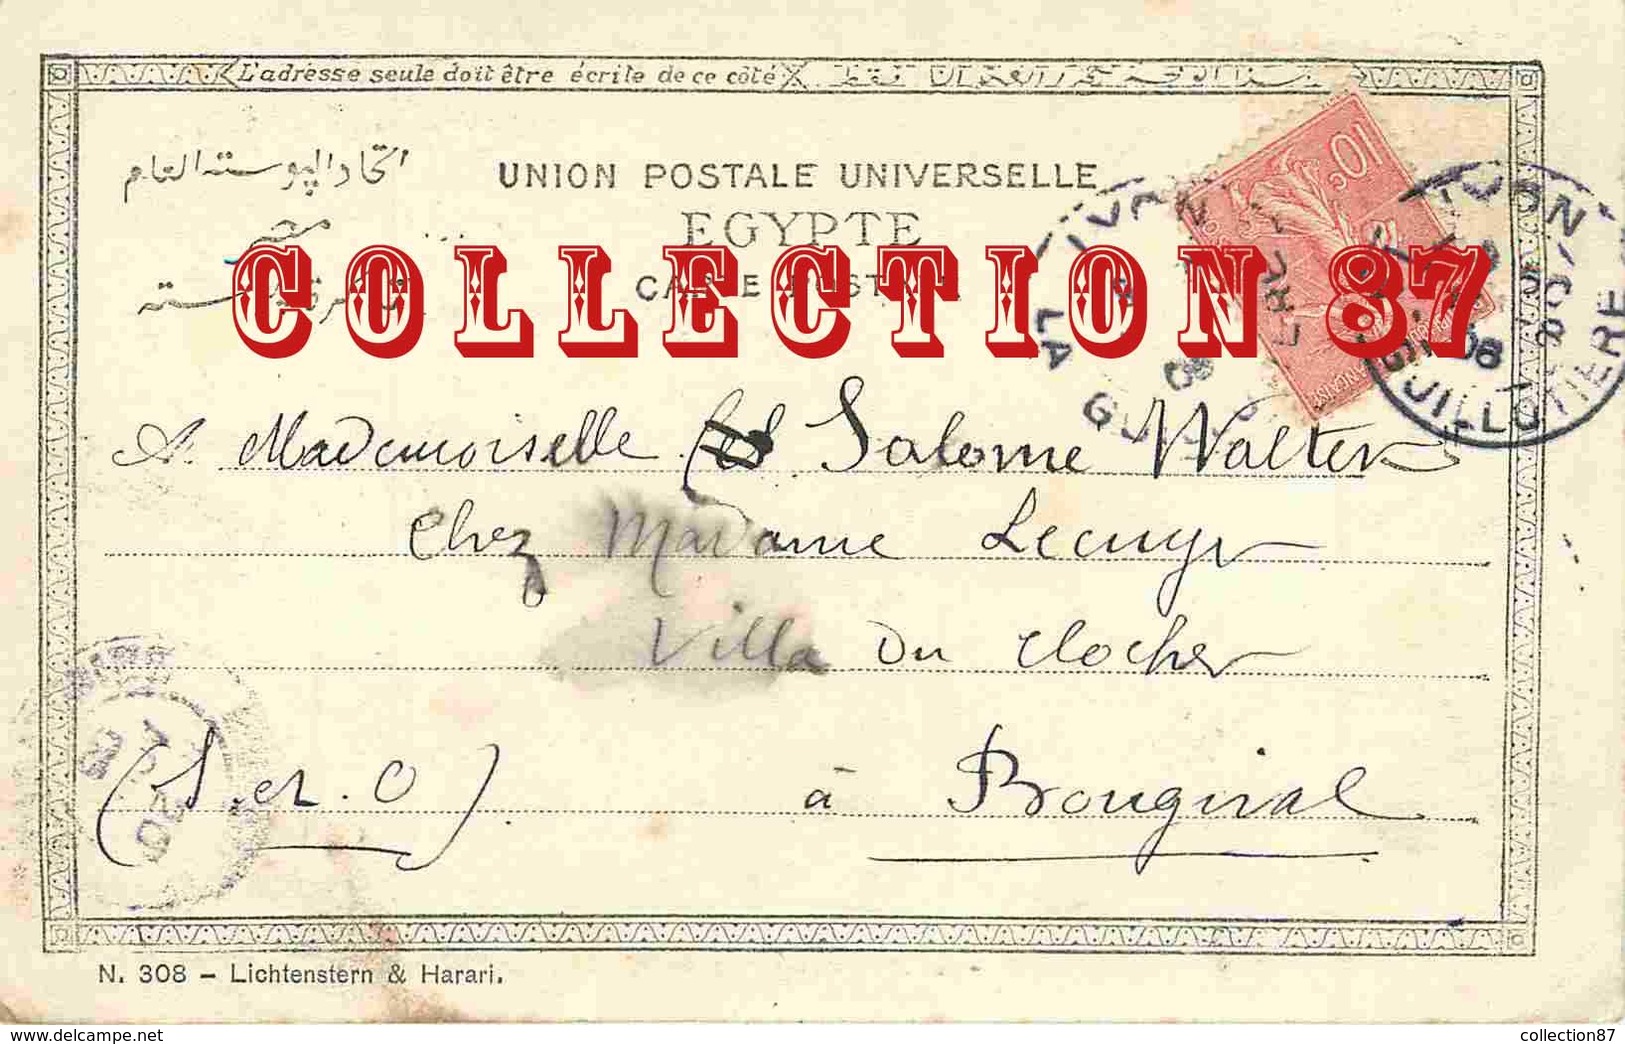 L'adresse seule doit être écrite de ce côté
اتحاد البوسته العام
UNION POSTALE UNIVERSELLE
مصر
EGYPTE
COLLECTION 87
10c
LYON
LA GUILLOTIERE
08
A Mademoiselle Salome Walter
Chez Madame Lecuyer
Villa Du Clocher
(S. et. O) à Bougival
N. 308 – Lichtenstern & Harari.
delcampe.net
collection87